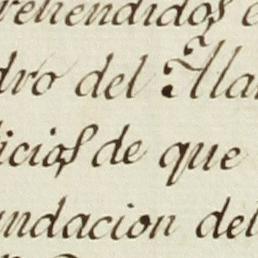 rehendidos
dro del Ila
licias de que
undacion del